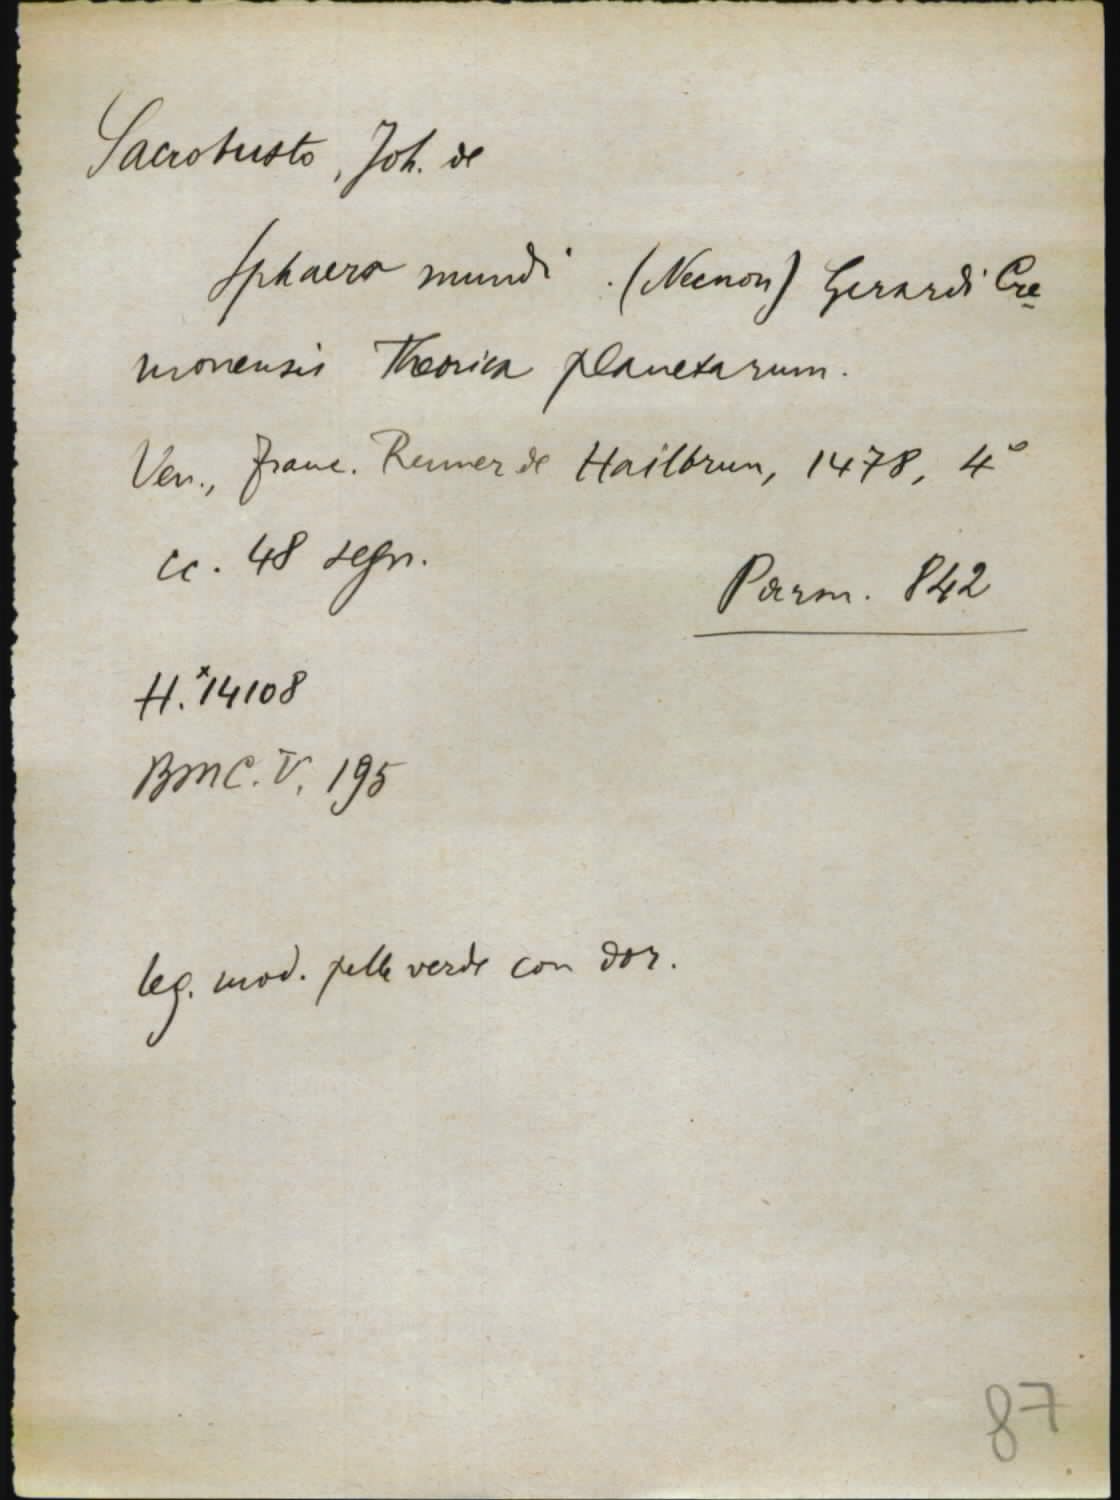 Sacrobusto, Joh. de
Sphaera mundi. (Necnon) Gerardi Cre-
monensis Theorica planetarum.
Ven., Franc. Renner de Hailbrun, 1478, 4°
cc. 48 segn.
Parm. 842
H.*14108
BMC. V. 195
leg. mod. pelle verde con dor.
87